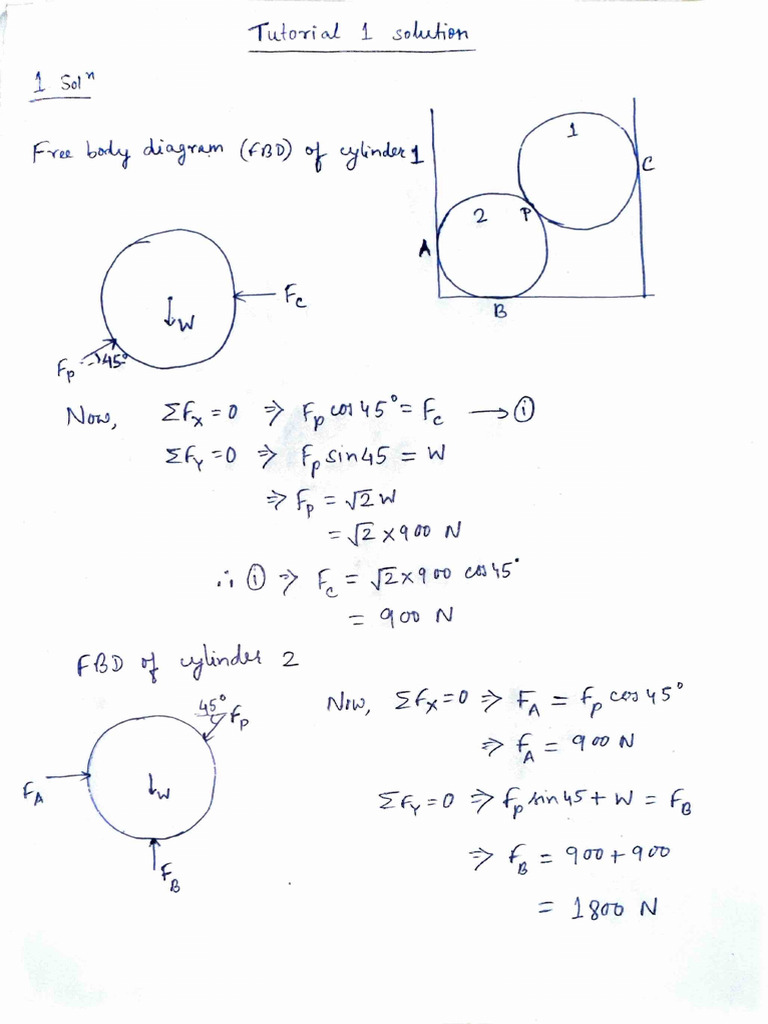 Tutorial 1 solution
1 Solⁿ
Free body diagram (FBD) of cylinder 1
1
C
2
P
A
B
F_C
W
F_P
45°
Now, ΣF_X = 0 ⇒ F_P cos 45° = F_C → ①
ΣF_Y = 0 ⇒ F_P sin 45 = W
⇒ F_P = √2 W
= √2 × 900 N
∴ ① ⇒ F_C = √2 × 900 cos 45°
= 900 N
FBD of cylinder 2
45°
F_P
F_A
W
F_B
Now, ΣF_X = 0 ⇒ F_A = F_P cos 45°
⇒ F_A = 900 N
ΣF_Y = 0 ⇒ F_P sin 45 + W = F_B
⇒ F_B = 900 + 900
= 1800 N